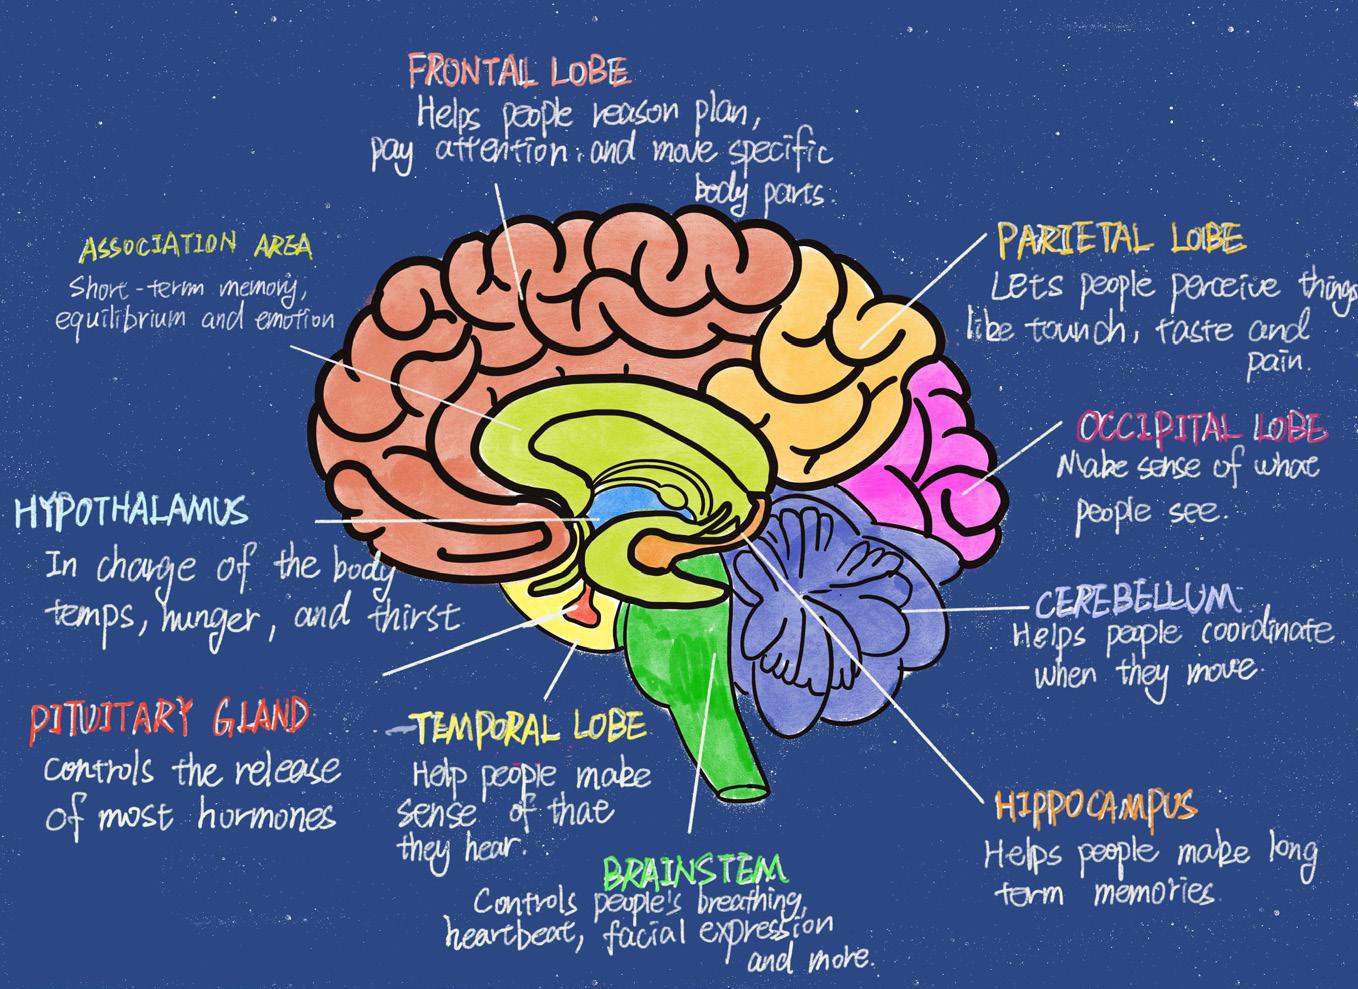 FRONTAL LOBE
Helps people reason plan,
pay attention. and move specific
body parts.
ASSOCIATION AREA
Short-term memory,
equilibrium and emotion
PARIETAL LOBE
Lets people perceive things
like tounch, taste and
pain.
OCCIPITAL LOBE
Make sense of what
people see.
HYPOTHALAMUS
In charge of the body
temps, hunger, and thirst
CEREBELLUM
Helps people coordinate
when they move.
PITUITARY GLAND
Controls the release
of most hormones
TEMPORAL LOBE
Help people make
sense of that
they hear.
HIPPOCAMPUS
Helps people make long
term memories
BRAINSTEM
Controls people's breathing,
heartbeat, facial expression
and more.